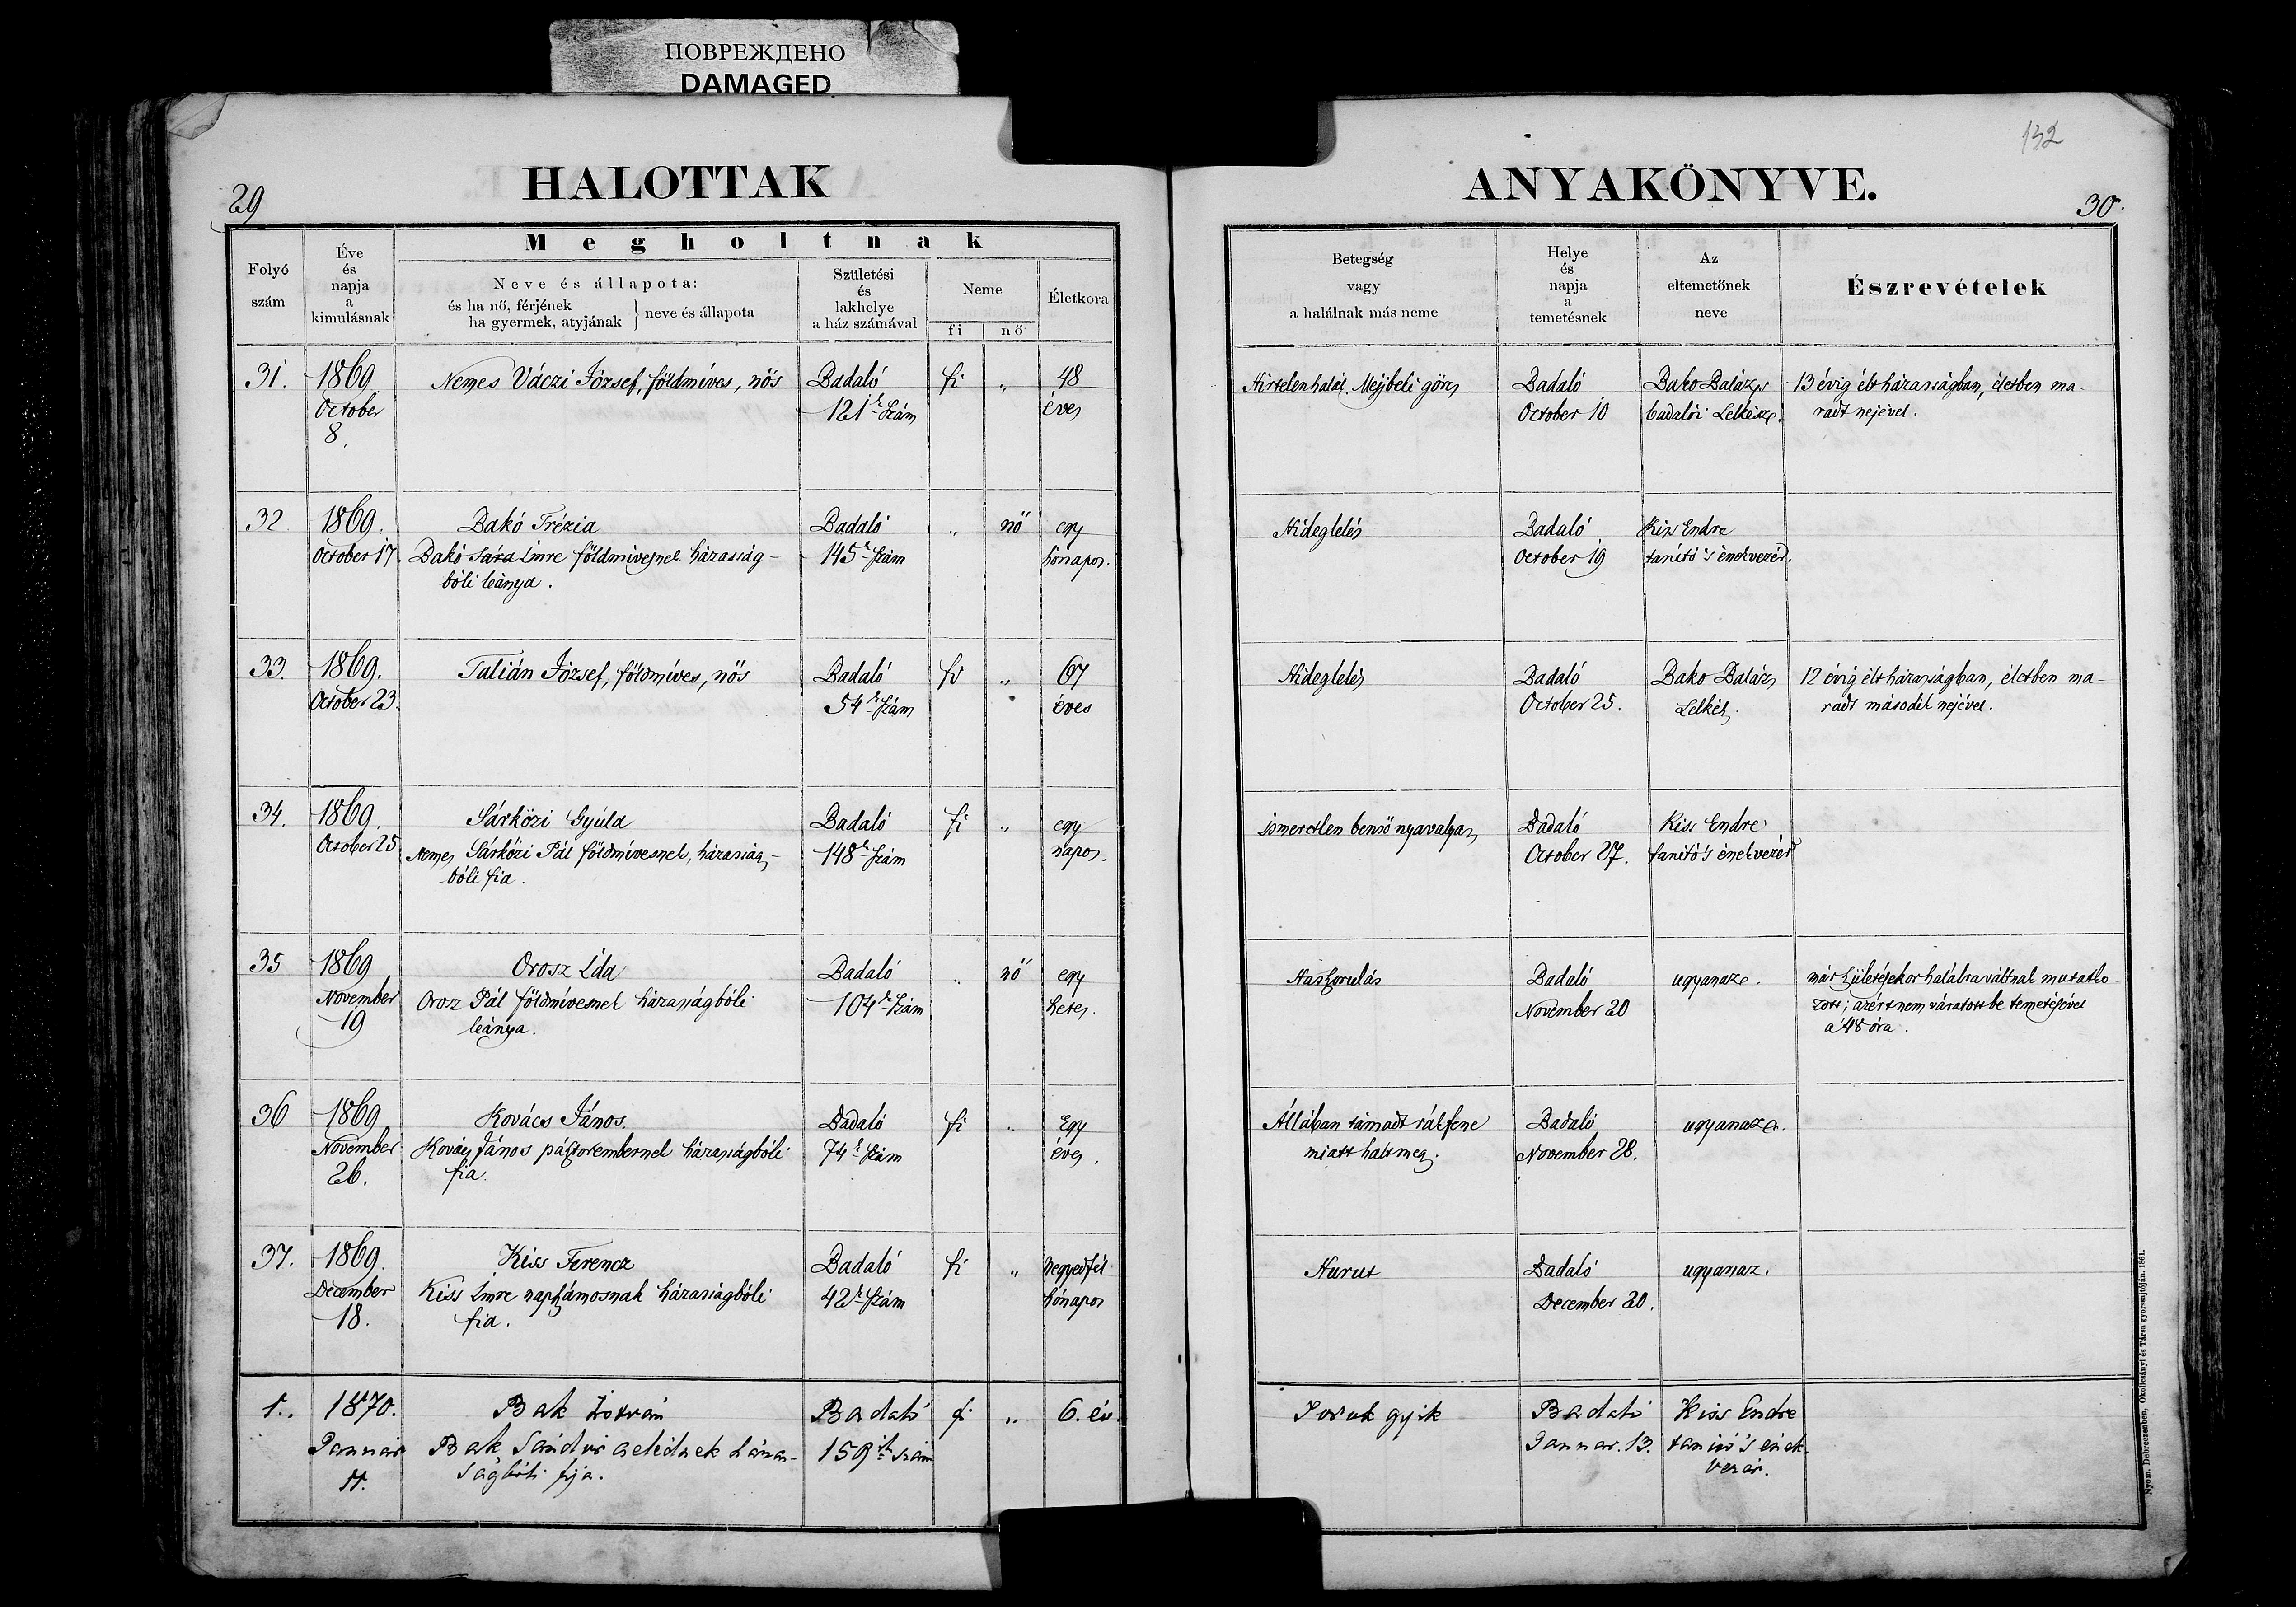 ПОВРЕЖДЕНО
DAMAGED
132
29
HALOTTAK
ANYAKÖNYVE.
30.
Folyó
szám
Éve
és
napja
a
kimulásnak
Megholtnak
Neve és állapota:
és ha nő, férjének
ha gyermek, atyjának
neve és állapota
Születési
és
lakhelye
a ház számával
Neme
fi nő
Életkora
Betegség
vagy
a halálnak más neme
Helye
és
napja
a
temetésnek
Az
eltemetőnek
neve
Észrevételek
31. 1869 Nemes Váczi József, földmíves, nős Badaló fi „ 48
October 121k Szám éves
8.
Hirtelen halál. Mejjbeli görcs Badaló Bako Balázs 13 évig élt házasságban, életben ma-
October 10 badalói Lelkész. radt nejével.
32 1869. Bakó Trézia Badaló „ nő egy
October 17. Bakó Sára Imre földmivesnek házasság- 145k Szám hónapos.
bóli leánya.
Hideglelés Badaló Kiss Endre
October 19 tanító 's énekvezér.
33. 1869. Talián József, földmíves, nős Badaló fi „ 67
October 23. 54k Szám éves
Hideglelés Badaló Bako Balázs 12 évig élt házasságban, életben ma-
October 25. Lelkész. radt második nejével.
34. 1869. Sárközi Gyúla Badaló fi „ egy
October 25 Nemes Sárközi Pál földmívesnek, házasság- 148k Szám napos.
bóli fia.
ismeretlen benső nyavalyás Badaló Kiss Endre
October 27. tanító 's énekvezér
35 1869 Orosz Ida Badaló „ nő egy
November Orosz Pál földmívesnek házasságbóli 104k Szám hetes.
19 leánya.
Hasszorulás Badaló ugyanaz. már születésekor halálra váltnak mutatko-
November 20 zott; azért nem váratott be temetésével
a' 48 óra.
36 1869 Kovács János. Badaló fi „ Egy
November Kovács János pásztorembernek házasságbóli 74k Szám éves.
26. fia.
Állában támadt rákfene Badaló ugyanaz.
miatt halt meg. November 28.
37. 1869. Kiss Ferencz Badaló fi „ negyedfél
December Kiss Imre napszámosnak házasságbóli 42k Szám hónapos
18. fia.
Hurut Badaló ugyanaz.
December 20.
1. 1870. Bak István Badaló fi „ 6. év.
Januar Bak Sándor házas- 159ik szám
11. ságbóli fija.
Torok gyik Badaló Kiss Endre
Januar. 13. tanító 's ének-
vezér.
Nyom. Debreczenben, Ökröltenányi és Társa gyorssajtóján. 1861.